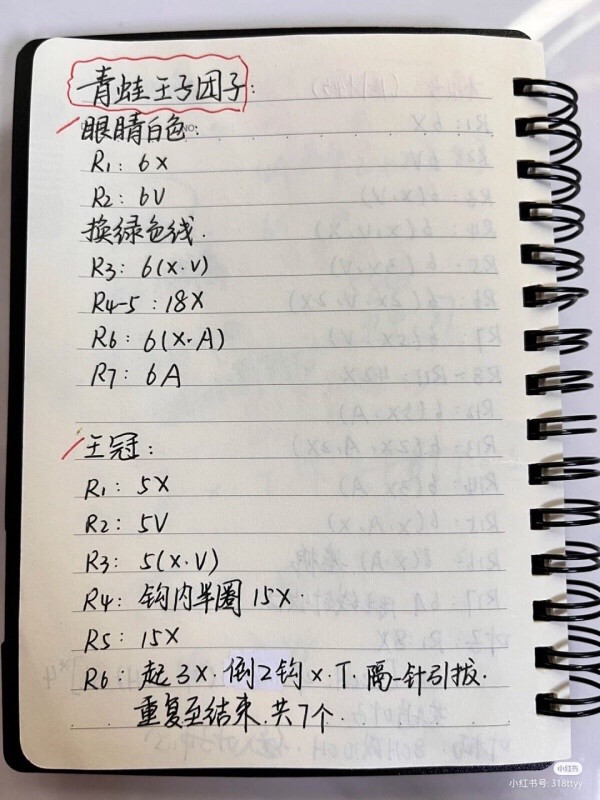 青蛙王子团子:
眼睛白色:
R1: 6X
R2: 6V
换绿色线.
R3: 6(X.V)
R4-5: 18X
R6: 6(X.A)
R7: 6A
王冠:
R1: 5X
R2: 5V
R3: 5(X.V)
R4: 钩内半圈 15X.
R5: 15X
R6: 起3X.倒2钩X.T.隔一针引拔.
重复至结束.共7个.
小红书
小红书号: 318ttyy